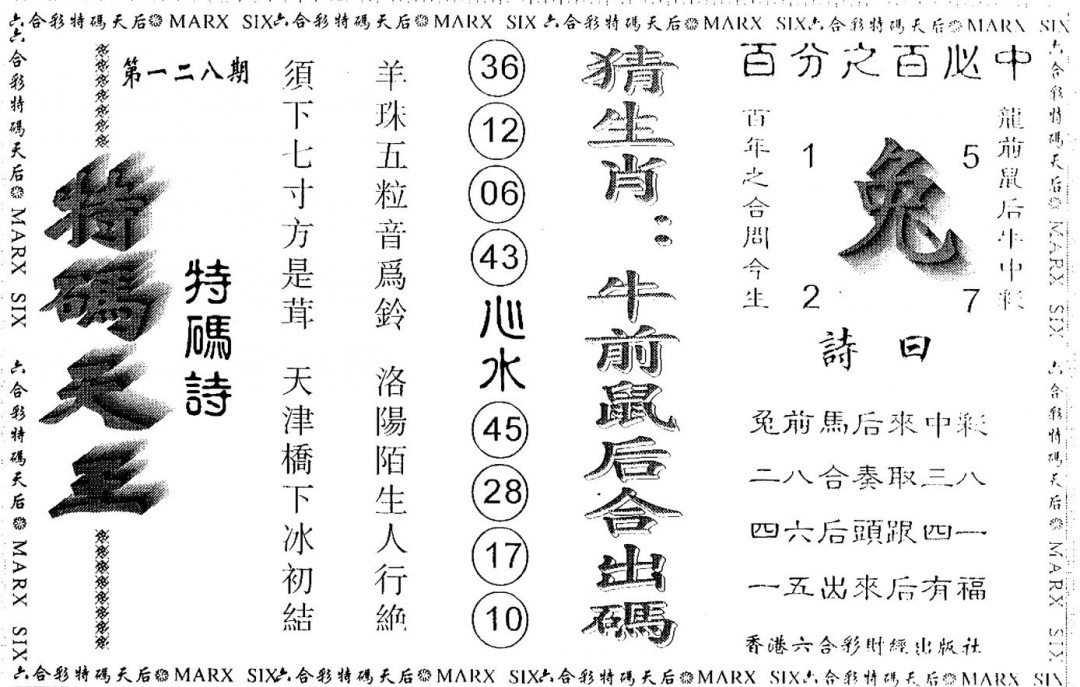 六合彩特碼天后 MARX SIX 六合彩特碼天后 MARX SIX 六合彩特碼天后 MARX SIX 六合彩特碼天后 MARX SIX
六合彩特碼天后 MARX SIX 六合彩特碼天后 MARX SIX
第一二八期
特碼天王
特碼詩
須下七寸方是茸 天津橋下冰初結
羊珠五粒音爲鈴 洛陽陌生人行絶
36
12
06
43
心水
45
28
17
10
猜生肖：牛前鼠后合出碼
百分之百必中
百年之合問今生
1 5
兔
2 7
龍前鼠后牛中彩
詩曰
兔前馬后來中彩
二八合奏取三八
四六后頭跟四一
一五出來后有福
香港六合彩財經出版社
六合彩特碼天后 MARX SIX 六合彩特碼天后 MARX SIX
六合彩特碼天后 MARX SIX 六合彩特碼天后 MARX SIX 六合彩特碼天后 MARX SIX 六合彩特碼天后 MARX SIX